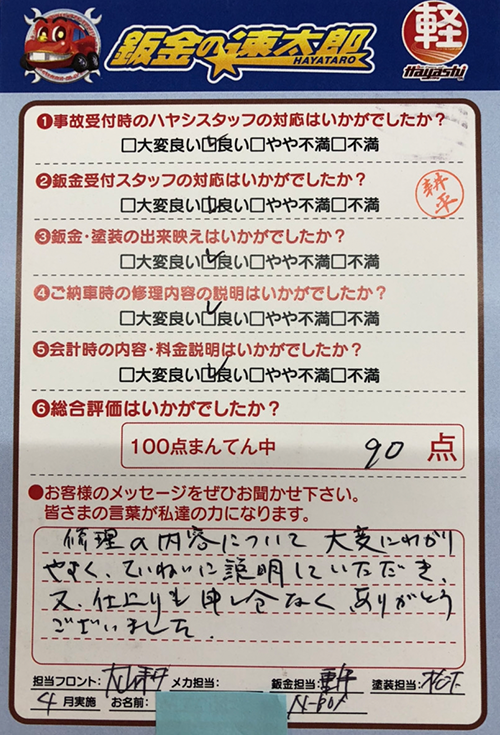 鈑金の速太郎
HAYATARO
軽
Hayashi
❶事故受付時のハヤシスタッフの対応はいかがでしたか?
□大変良い□良い□やや不満□不満
❷鈑金受付スタッフの対応はいかがでしたか?
□大変良い□良い□やや不満□不満
耕平
❸鈑金・塗装の出来映えはいかがでしたか?
□大変良い□良い□やや不満□不満
❹ご納車時の修理内容の説明はいかがでしたか?
□大変良い□良い□やや不満□不満
❺会計時の内容・料金説明はいかがでしたか?
□大変良い□良い□やや不満□不満
❻総合評価はいかがでしたか?
100点まんてん中 90 点
●お客様のメッセージをぜひお聞かせ下さい。
皆さまの言葉が私達の力になります。
修理の内容について 大変にわかり
やすく、ていねいに説明していただき、
又、仕上りも申し分なく ありがとう
ございました。
担当フロント: メカ担当: 鈑金担当: 塗装担当:
4月実施 お名前: N-BOX